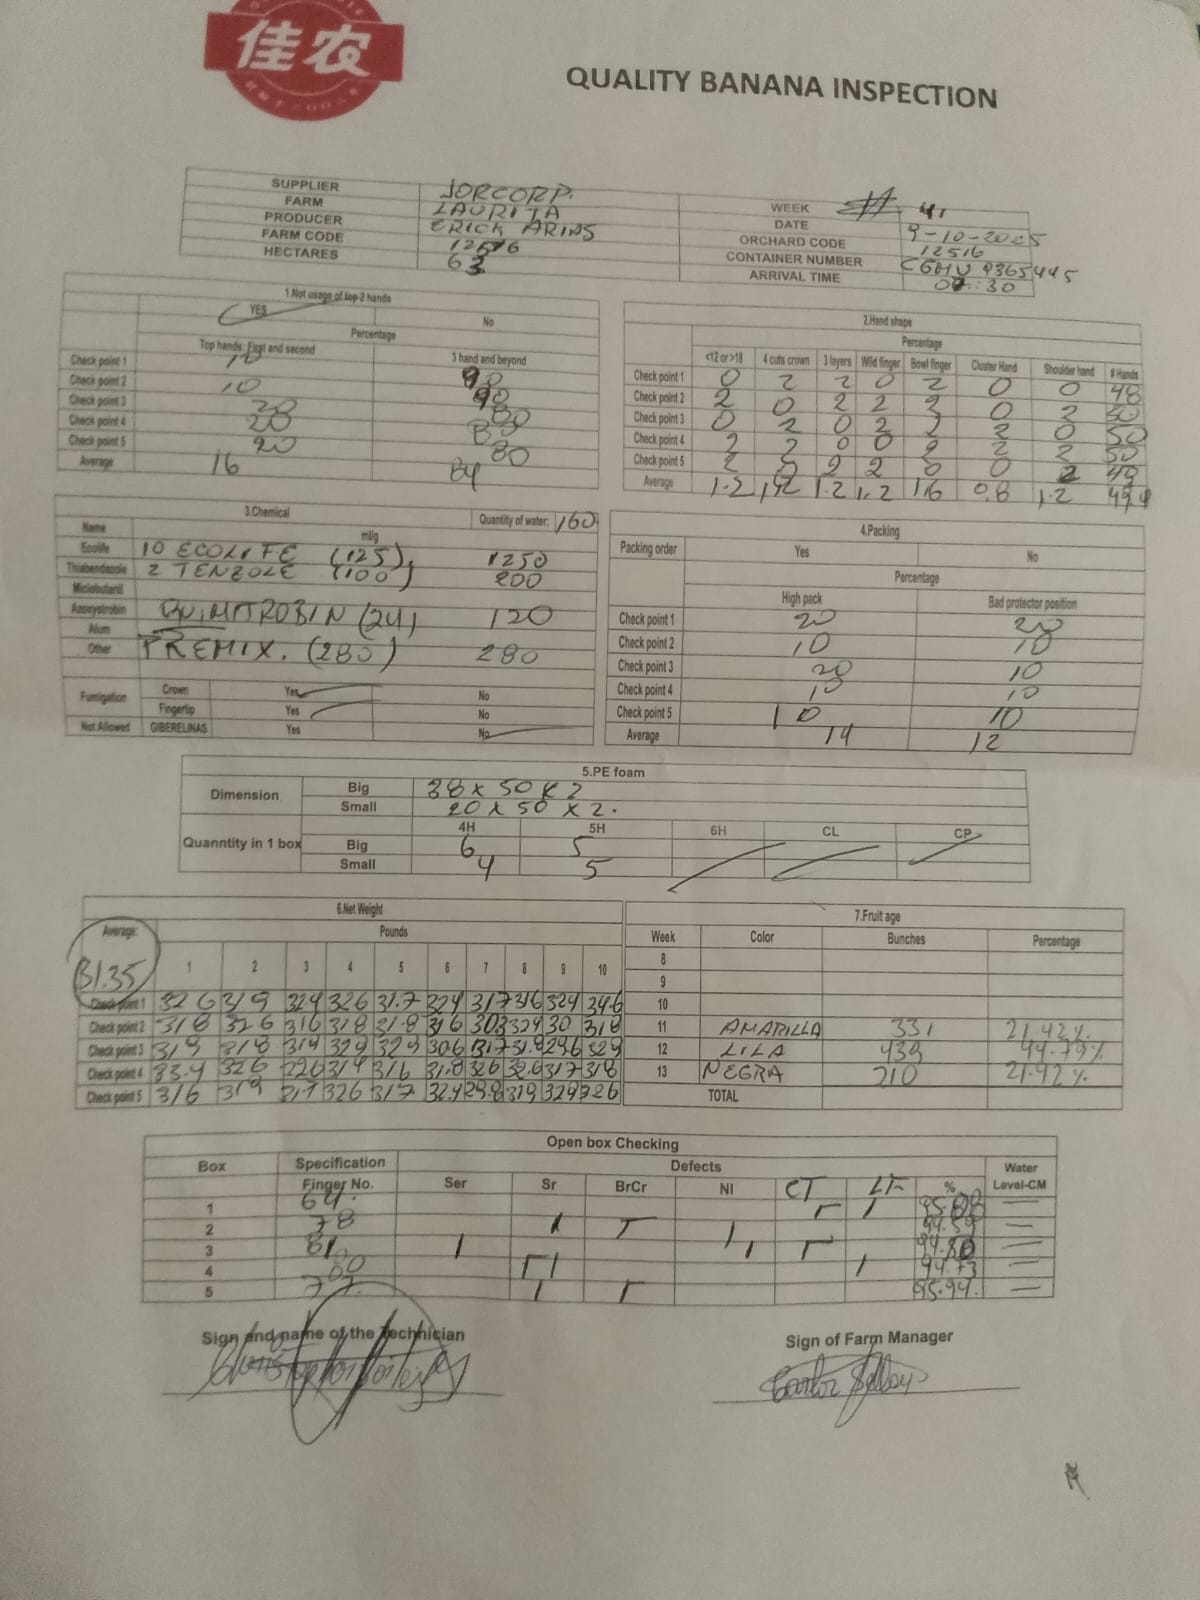 佳农
QUALITY BANANA INSPECTION
SUPPLIER JORCORP.
FARM LAURITA
PRODUCER ERICK ARIAS
FARM CODE 12516
HECTARES 63
WEEK # 41
DATE 9-10-2025
ORCHARD CODE 12516
CONTAINER NUMBER
ARRIVAL TIME 07:30
1.Not usage of top 2 hands
YES No
Percentage
Top hands: First and second 3 hand and beyond
Check point 1 10 90
Check point 2 10 90
Check point 3 20 80
Check point 4 20 80
Check point 5 20 80
Average 16 84
2.Hand shape
Percentage
<12 or >18 4 cuts crown 3 layers Wild finger Bowl finger Cluster Hand Shoulder hand # Hands
Check point 1 0 2 2 0 2 0 0 48
Check point 2 2 0 2 2 2 0 2 50
Check point 3 0 2 0 2 2 2 0 50
Check point 4 2 2 0 0 2 2 2 50
Check point 5 2 2 2 0 0 2 49
Average 1.2 1.2 1.2 1.6 0.8 1.2 49.4
3.Chemical Quantity of water: 160
Name ml/g
Ecolife 10 ECOLIFE (125) 1250
Thiabendazole 2 TENZOLE (100) 200
Miclobutanil
Azoxystrobin QUIMITROBIN (24) 120
Alum
Other PREMIX. (280) 280
Fumigation Crown Yes No
Fingertip Yes No
Not Allowed GIBERELINAS Yes No
4.Packing
Packing order Yes No
Percentage
High pack Bad protector position
Check point 1 20 20
Check point 2 10 10
Check point 3 20 10
Check point 4 10 10
Check point 5 10 10
Average 14 12
5.PE foam
Dimension Big 38 x 50 x 2
Small 20 x 50 x 2.
Quanntity in 1 box 4H 5H 6H CL CP
Big 6 5
Small 4 5
6.Net Weight
Average: Pounds
31.35 1 2 3 4 5 6 7 8 9 10
Check point 1 326 319 324 326 31.7 324 317 316 324 346
Check point 2 318 326 316 318 31.8 316 303 324 30 318
Check point 3 319 318 319 329 329 306 317 31.8 296 329
Check point 4 33.4 326 314 316 31.8 326 32.6 317 318
Check point 5 316 319 31.7 326 317 32.4 29.8 319 329 326
7.Fruit age
Week Color Bunches Percentage
8
9
10
11 AMARILLA 331 21.42%
12 LILA 439 44.79%
13 NEGRA 210 21.42%
TOTAL
Open box Checking
Box Specification Defects Water
Finger No. Ser Sr BrCr NI CT LF % Level-CM
1 64.
2 78 94.59
3 81
4 94.73
5 77. 95.94.
Sign and name of the Technician
Sign of Farm Manager